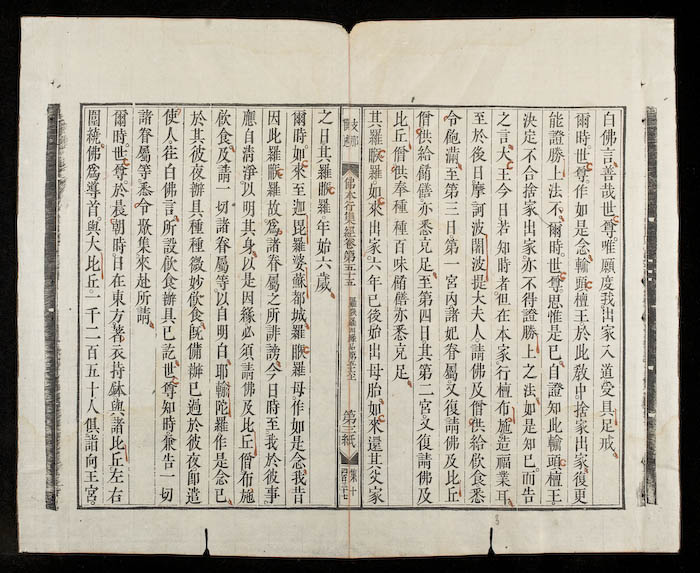 白佛言善哉世尊唯願度我出家入道受具足戒
爾時世尊作如是念輸頭檀王於此教中捨家出家復更
能證勝上法不爾時世尊思惟是已自證知此輸頭檀王
決定不合捨家出家亦不得證勝上之法如是知已而告
之言大王今日若知時者但在本家行檀布施造福業耳
至於後日摩訶波闍波提大夫人請佛及僧供給飲食悉
令飽滿至第三日第一宮內諸妃眷屬又復請佛及比丘
僧供給餚饍亦悉充足至第四日其第二宮又復請佛及
比丘僧供奉種種百味餚饍亦悉充足
其羅睺羅如來出家六年已後始出母胎如來還其父家
支那
佛本行集經卷第五十五
第三紙
之日其羅睺羅年始六歲
爾時如來至迦毘羅婆蘇都城羅睺羅母作如是念我昔
因此羅睺羅故為諸眷屬之所誹謗今日時至我於彼事
應自清淨以明其身以是因緣必須請佛及比丘僧布施
飲食及請一切諸眷屬等以自明白耶輸陀羅作是念已
於其彼夜辦具種種微妙飲食既備辦已過於彼夜即遣
使人往白佛言所設飲食辦具已訖世尊知時兼告一切
諸眷屬等悉令聚集來赴所請
爾時世尊於晨朝時日在東方著衣持鉢與諸比丘左右
圍繞佛為導首與大比丘一千二百五十人俱詣向王宮